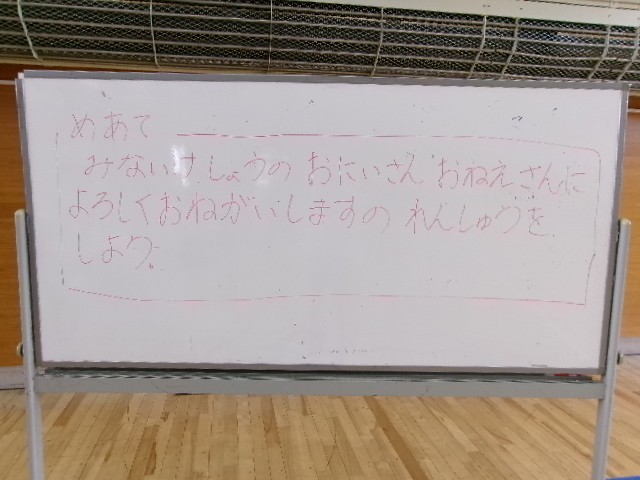 めあて
みないけしょうの おにいさん おねえさんに
よろしくおねがいしますの れんしゅうを
しよう。